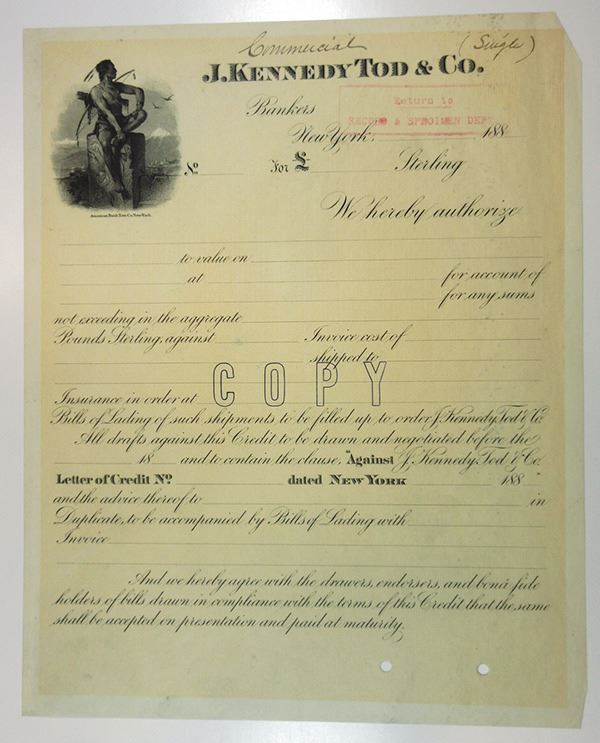 Commercial (Single)
J. KENNEDY TOD & CO.
Bankers
Return to
RECORD & SPECIMEN DEPT
New York, 188
No For £ Sterling
American Bank Note Co. New York.
We hereby authorize
to value on
at for account of
for any sums
not exceeding in the aggregate
Pounds Sterling, against Invoice cost of
shipped to
COPY
Insurance in order at
Bills of Lading of such shipments to be filled up to order J. Kennedy Tod & Co.
All drafts against this Credit to be drawn and negotiated before the
18 and to contain the clause, "Against J. Kennedy Tod & Co.
Letter of Credit No dated NEW YORK 188 "
and the advice thereof to in
Duplicate, to be accompanied by Bills of Lading with
Invoice
And we hereby agree with the drawers, endorsers, and bonâ fide
holders of bills drawn in compliance with the terms of this Credit that the same
shall be accepted on presentation and paid at maturity.